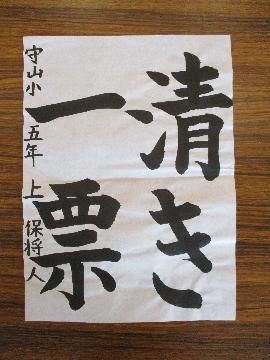 清き
一票
守山小 五年 上 保将人